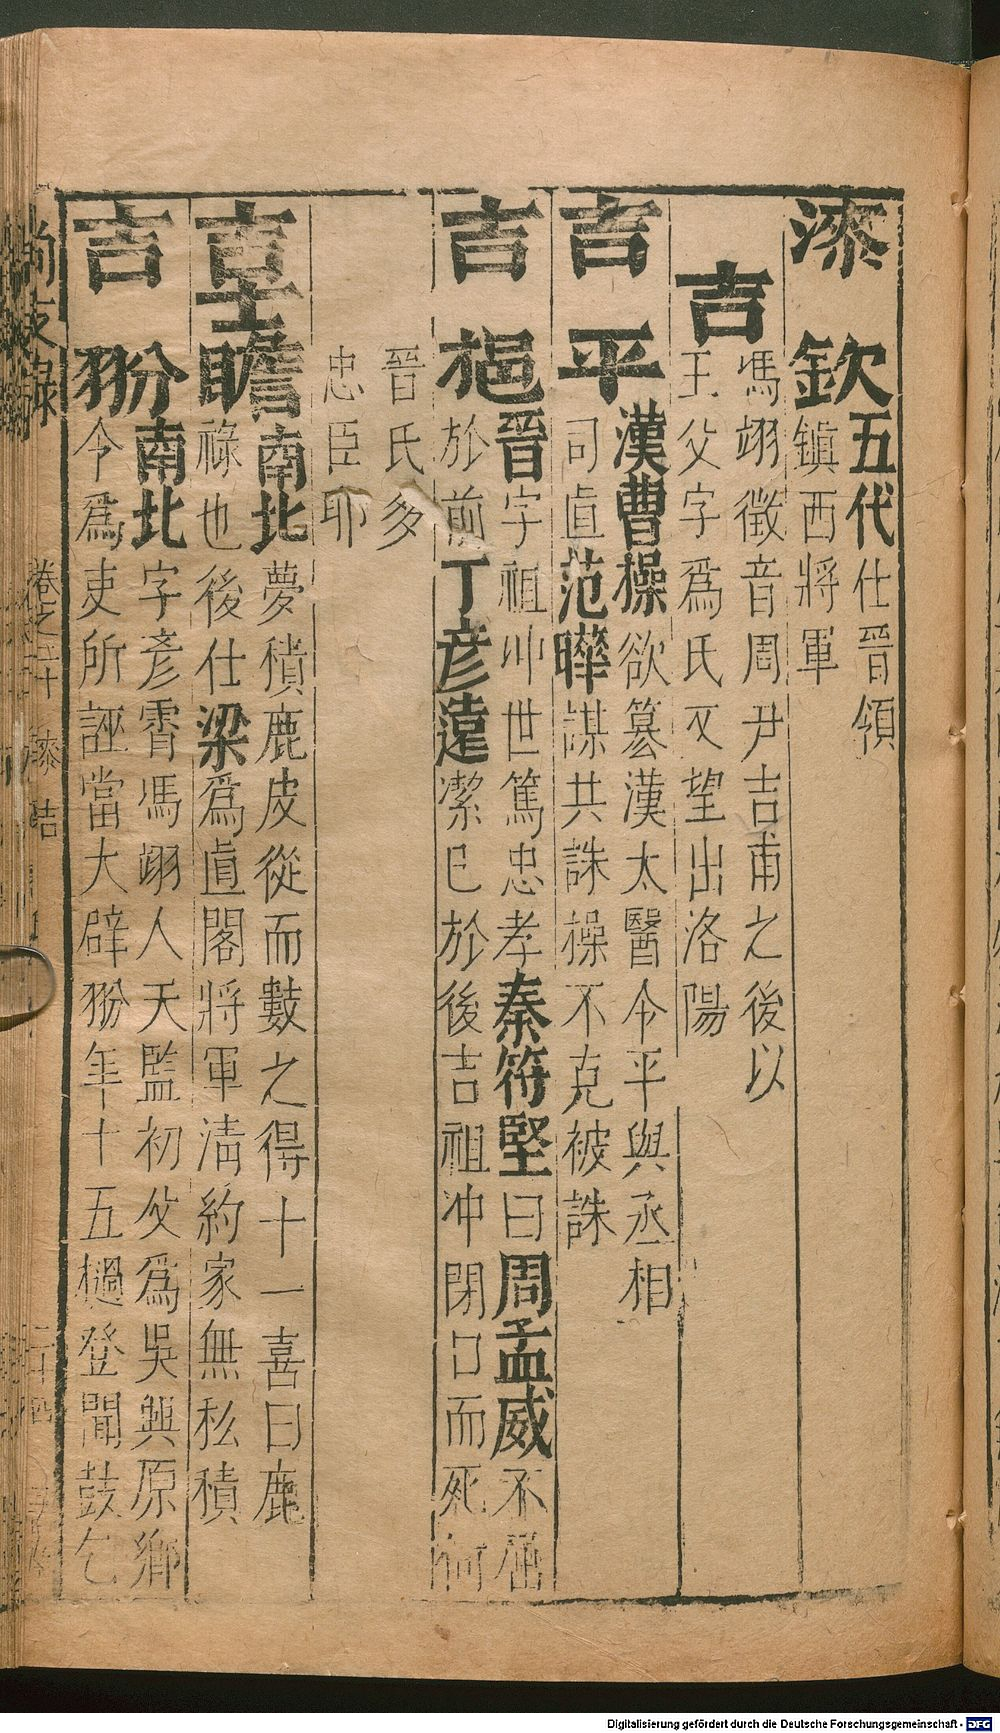 漆欽五代仕晉領
鎮西將軍
吉馮翊徵音周尹吉甫之後以
王父字爲氏又望出洛陽
吉平漢曹操欲篡漢太醫令平與丞相
司直范曄謀共誅操不克被誅
吉挹晉字祖冲世篤忠孝秦符堅曰周孟威不屈
於前丁彥遠潔已於後吉祖冲閉口而死何
晉氏多
忠臣耶
吉士瞻南北夢積鹿皮從而數之得十一喜曰鹿
祿也後仕梁爲直閣將軍清約家無私積
吉翂南北字彥霄馮翊人天監初父爲吳興原鄉
令爲吏所誣當大辟翂年十五撾登聞鼓乞
尚友錄 卷之二十 漆 吉 二十四
Digitalisierung gefördert durch die Deutsche Forschungsgemeinschaft - DFG